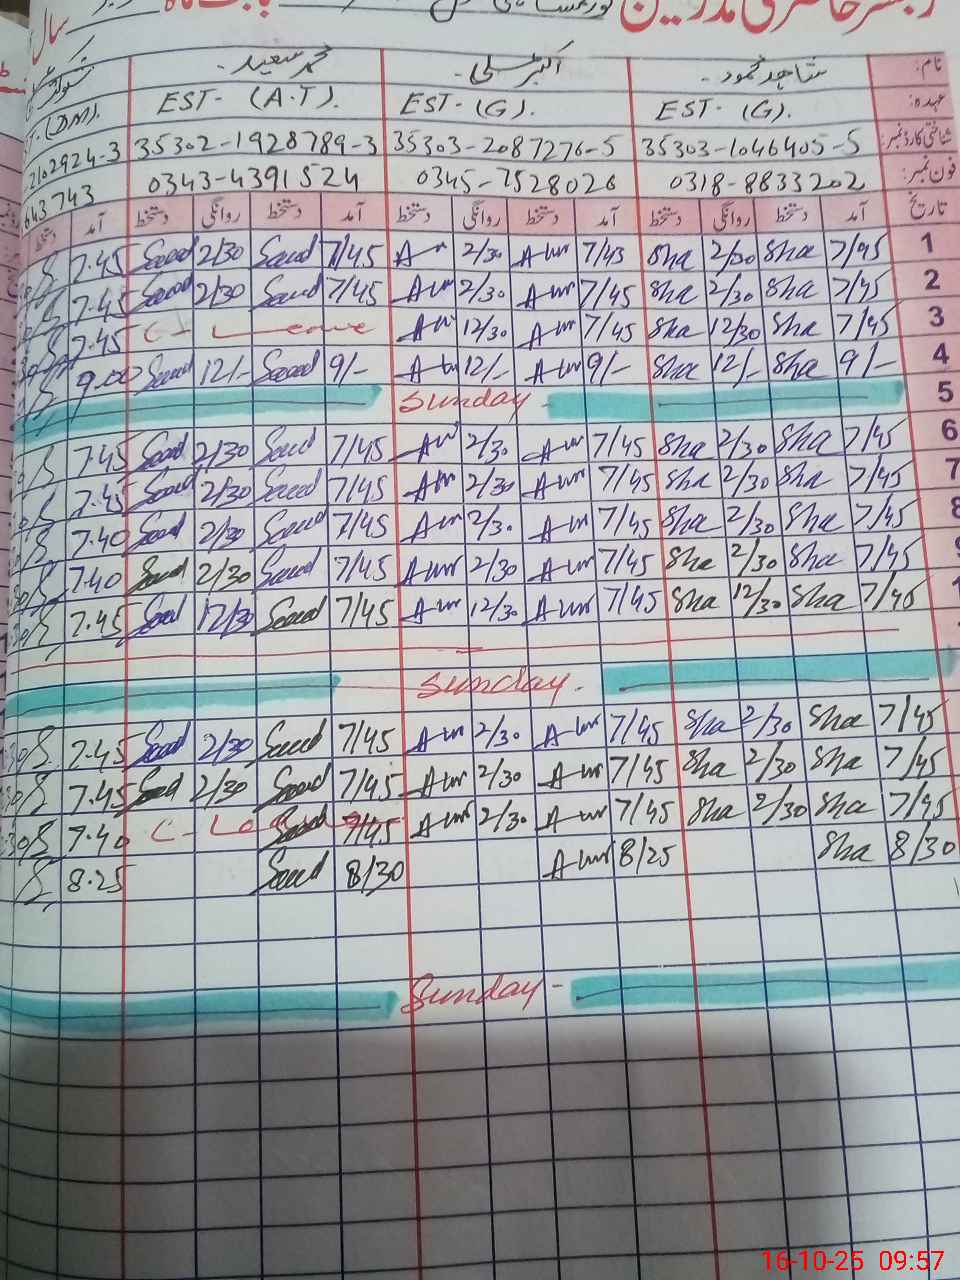 رجسٹر حاضری مدرسین
بابت ماہ سال
نام: شاہد محمود۔ اکبر علی۔ محمد سعید۔
عہدہ: EST-(G). EST-(G). EST-(A.T). (DM).
شناختی کارڈ نمبر: 35303-1046405-5 35303-2087276-5 35302-1928789-3 2102924-3
فون نمبر: 0318-8833202 0345-7528026 0343-4391524 643743
تاریخ آمد دستخط روانگی دستخط آمد دستخط روانگی دستخط آمد دستخط روانگی دستخط آمد دستخط
1 7/45 Sha 2/30 Sha 7/45 Aur 2/30 7/45 Saud 2/30 Saud 7.45
2 7/45 Sha 2/30 Sha 7/45 Aur 2/30 Aur 7/45 Saud 2/30 Saud 7.45
3 7/45 Sha 12/30 Sha 7/45 Aur 12/30 Aur C- Leave 7.45
4 9/- Sha 12/- Sha 9/- Aur 12/- Aur 9/- Saud 12/- Saud 9.00
5 Sunday
6 7/45 Sha 2/30 Sha 7/45 Aur 2/30 Aur 7/45 Saud 2/30 Saud 7.45
7 7/45 Sha 2/30 Sha 7/45 Aur 2/30 Aur 7/45 Saud 2/30 Saud 7.45
8 7/45 Sha 2/30 Sha 7/45 Aur 2/30 Aur 7/45 Saud 2/30 Saud 7.40
9 7/45 Sha 2/30 Sha 7/45 Aur 2/30 Aur 7/45 Saud 2/30 Saud 7.40
1 7/45 Sha 12/30 Sha 7/45 Aur 12/30 Aur 7/45 Saud 12/30 Saud 7.45
Sunday.
7/45 Sha 2/30 Sha 7/45 Aur 2/30 Aur 7/45 Saud 2/30 Saud 7.45
7/45 Sha 2/30 Sha 7/45 Aur 2/30 Aur 7/45 Saud 2/30 Saud 7.45
7/45 Sha 2/30 Sha 7/45 Aur 2/30 Aur 7/45 Saud C- Leave 7.40
8/30 Sha 8/25 Aur 8/30 Saud 8.25
Sunday-
16-10-25 09:57